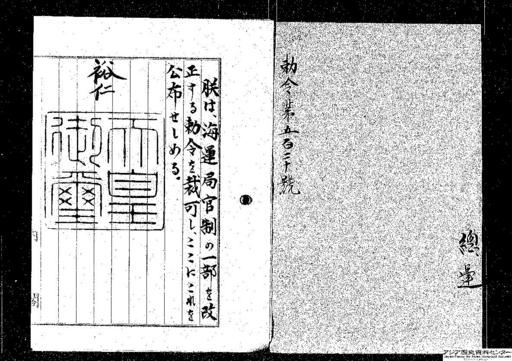 勅令第五百二十號
總運
朕は、海運局官制の一部を改
正する勅令を裁可し、ここにこれを
公布せしめる。
裕仁
天皇
御璽
アジア歴史資料センター
Japan Center for Asian Historical Records